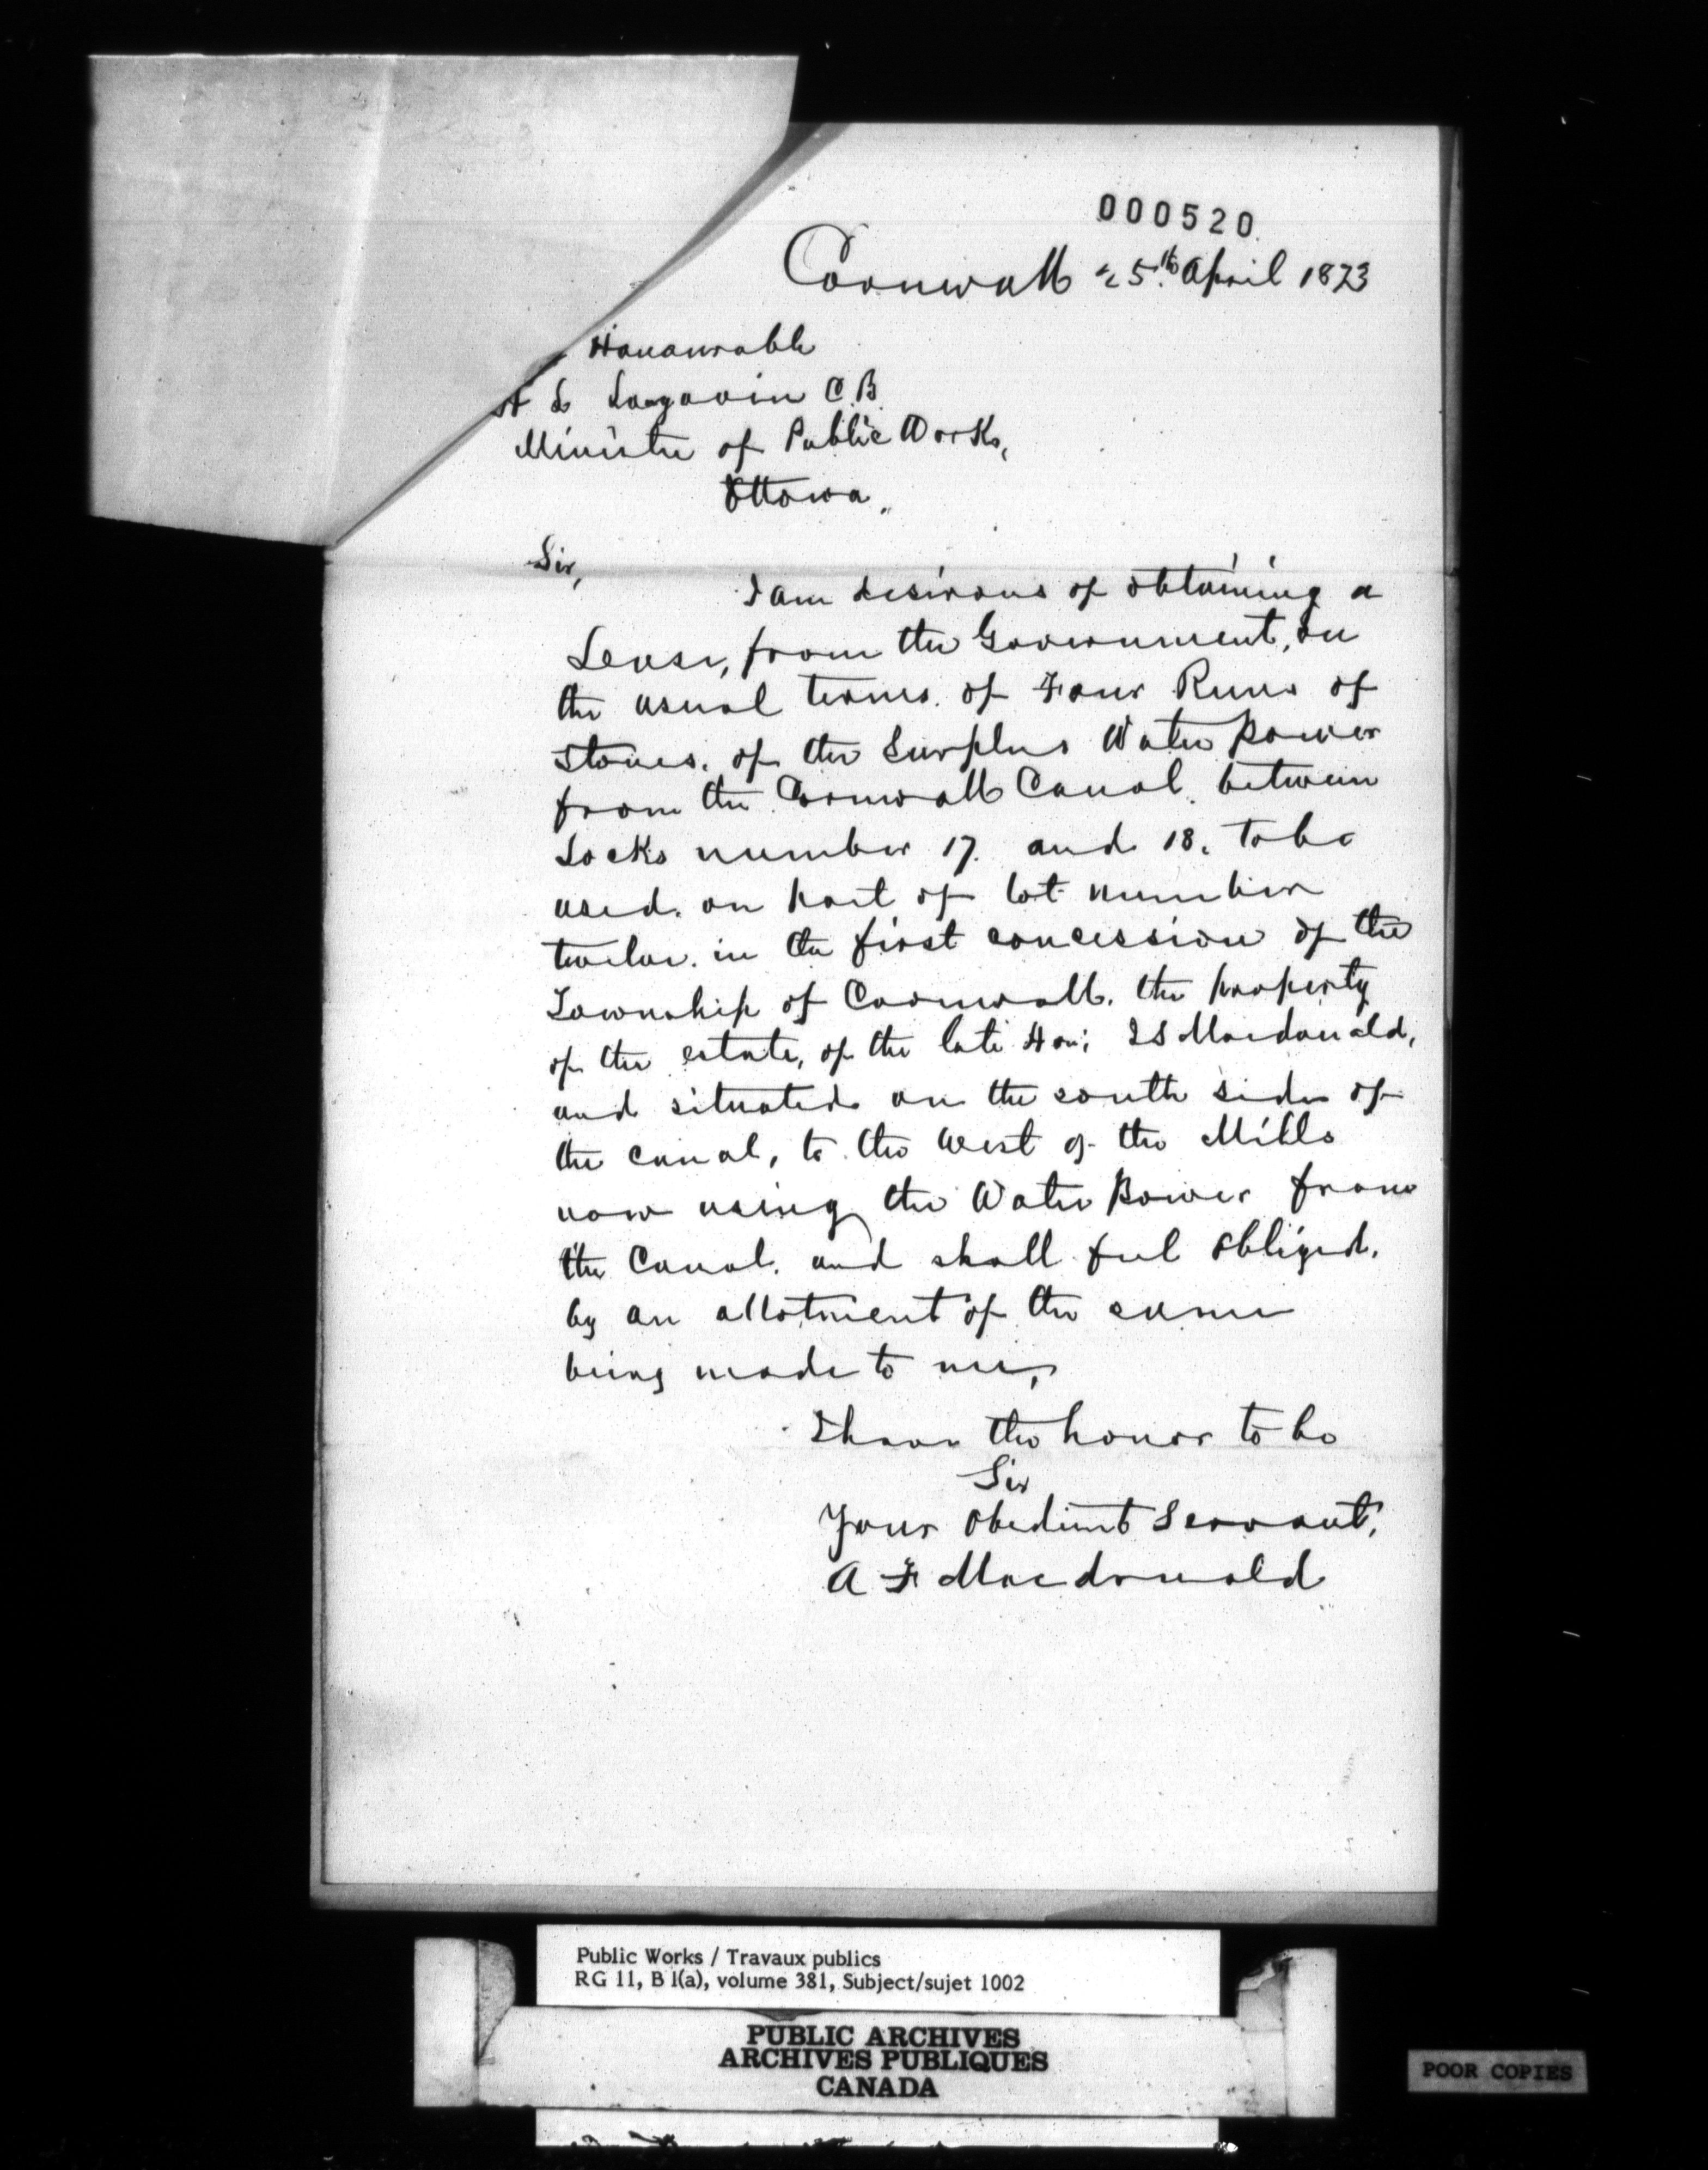 000520
Cornwall 25th April 1873
Honourable
H L Langevin C.B.
Minister of Public Works,
Ottawa,
Sir,
I am desirous of obtaining a
Lease, from the Government, on
the usual terms. of Four Runs of
Stones. of the Surplus Water Power
from the Cornwall Canal. between
Locks number 17. and 18. to be
used. on part of lot number
twelve. in the first concession of the
Township of Cornwall. the property
of the estate, of the late Hon; J S Macdonald,
and situated on the south side of
the canal, to the West of the Mills
now using the Water Power from
the Canal. and shall feel obliged.
by an allotment of the same
being made to me,
I have the honor to be
Sir
Your Obedient Servant,
A F Macdonald
Public Works / Travaux publics
RG 11, B 1(a), volume 381, Subject/sujet 1002
PUBLIC ARCHIVES
ARCHIVES PUBLIQUES
CANADA
POOR COPIES